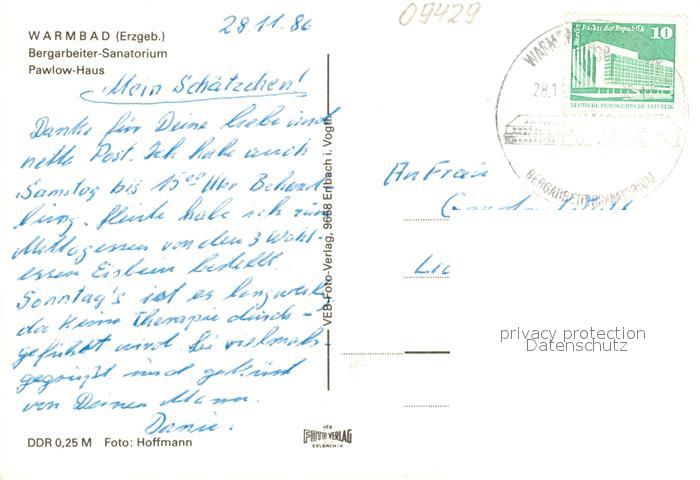 28.11.86
09429
WARMBAD (Erzgeb.)
Bergarbeiter-Sanatorium
Pawlow-Haus
Mein Schätzchen!
Danke für Deine liebe und
nette Post. Ich habe auch
Samstag bis 15⁰⁰ Uhr Behand
lung. Heute habe ich zum
Mittagessen von den 3 Wahl-
essen Eisbein bestellt.
Sonntag's ist es langweilig
da keine Therapie durch-
geführt wird. Sei vielmals
gegrüßt und geküsst
von Deinem Mann.
DDR 0,25 M Foto: Hoffmann
VEB Foto-Verlag, 9658 Erlbach i. Vogtl.
VEB
FOTO VERLAG
ERLBACH/V
Berlin Palast der Republik
10
DEUTSCHE DEMOKRATISCHE REPUBLIK
28.1
BERGARBEITERSANATORIUM
An Frau
privacy protection
Datenschutz